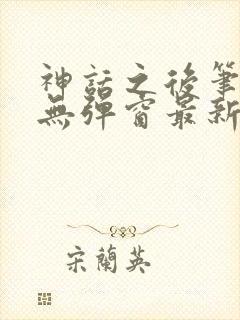 神話之後筆
無彈窗最新
宋蘭英